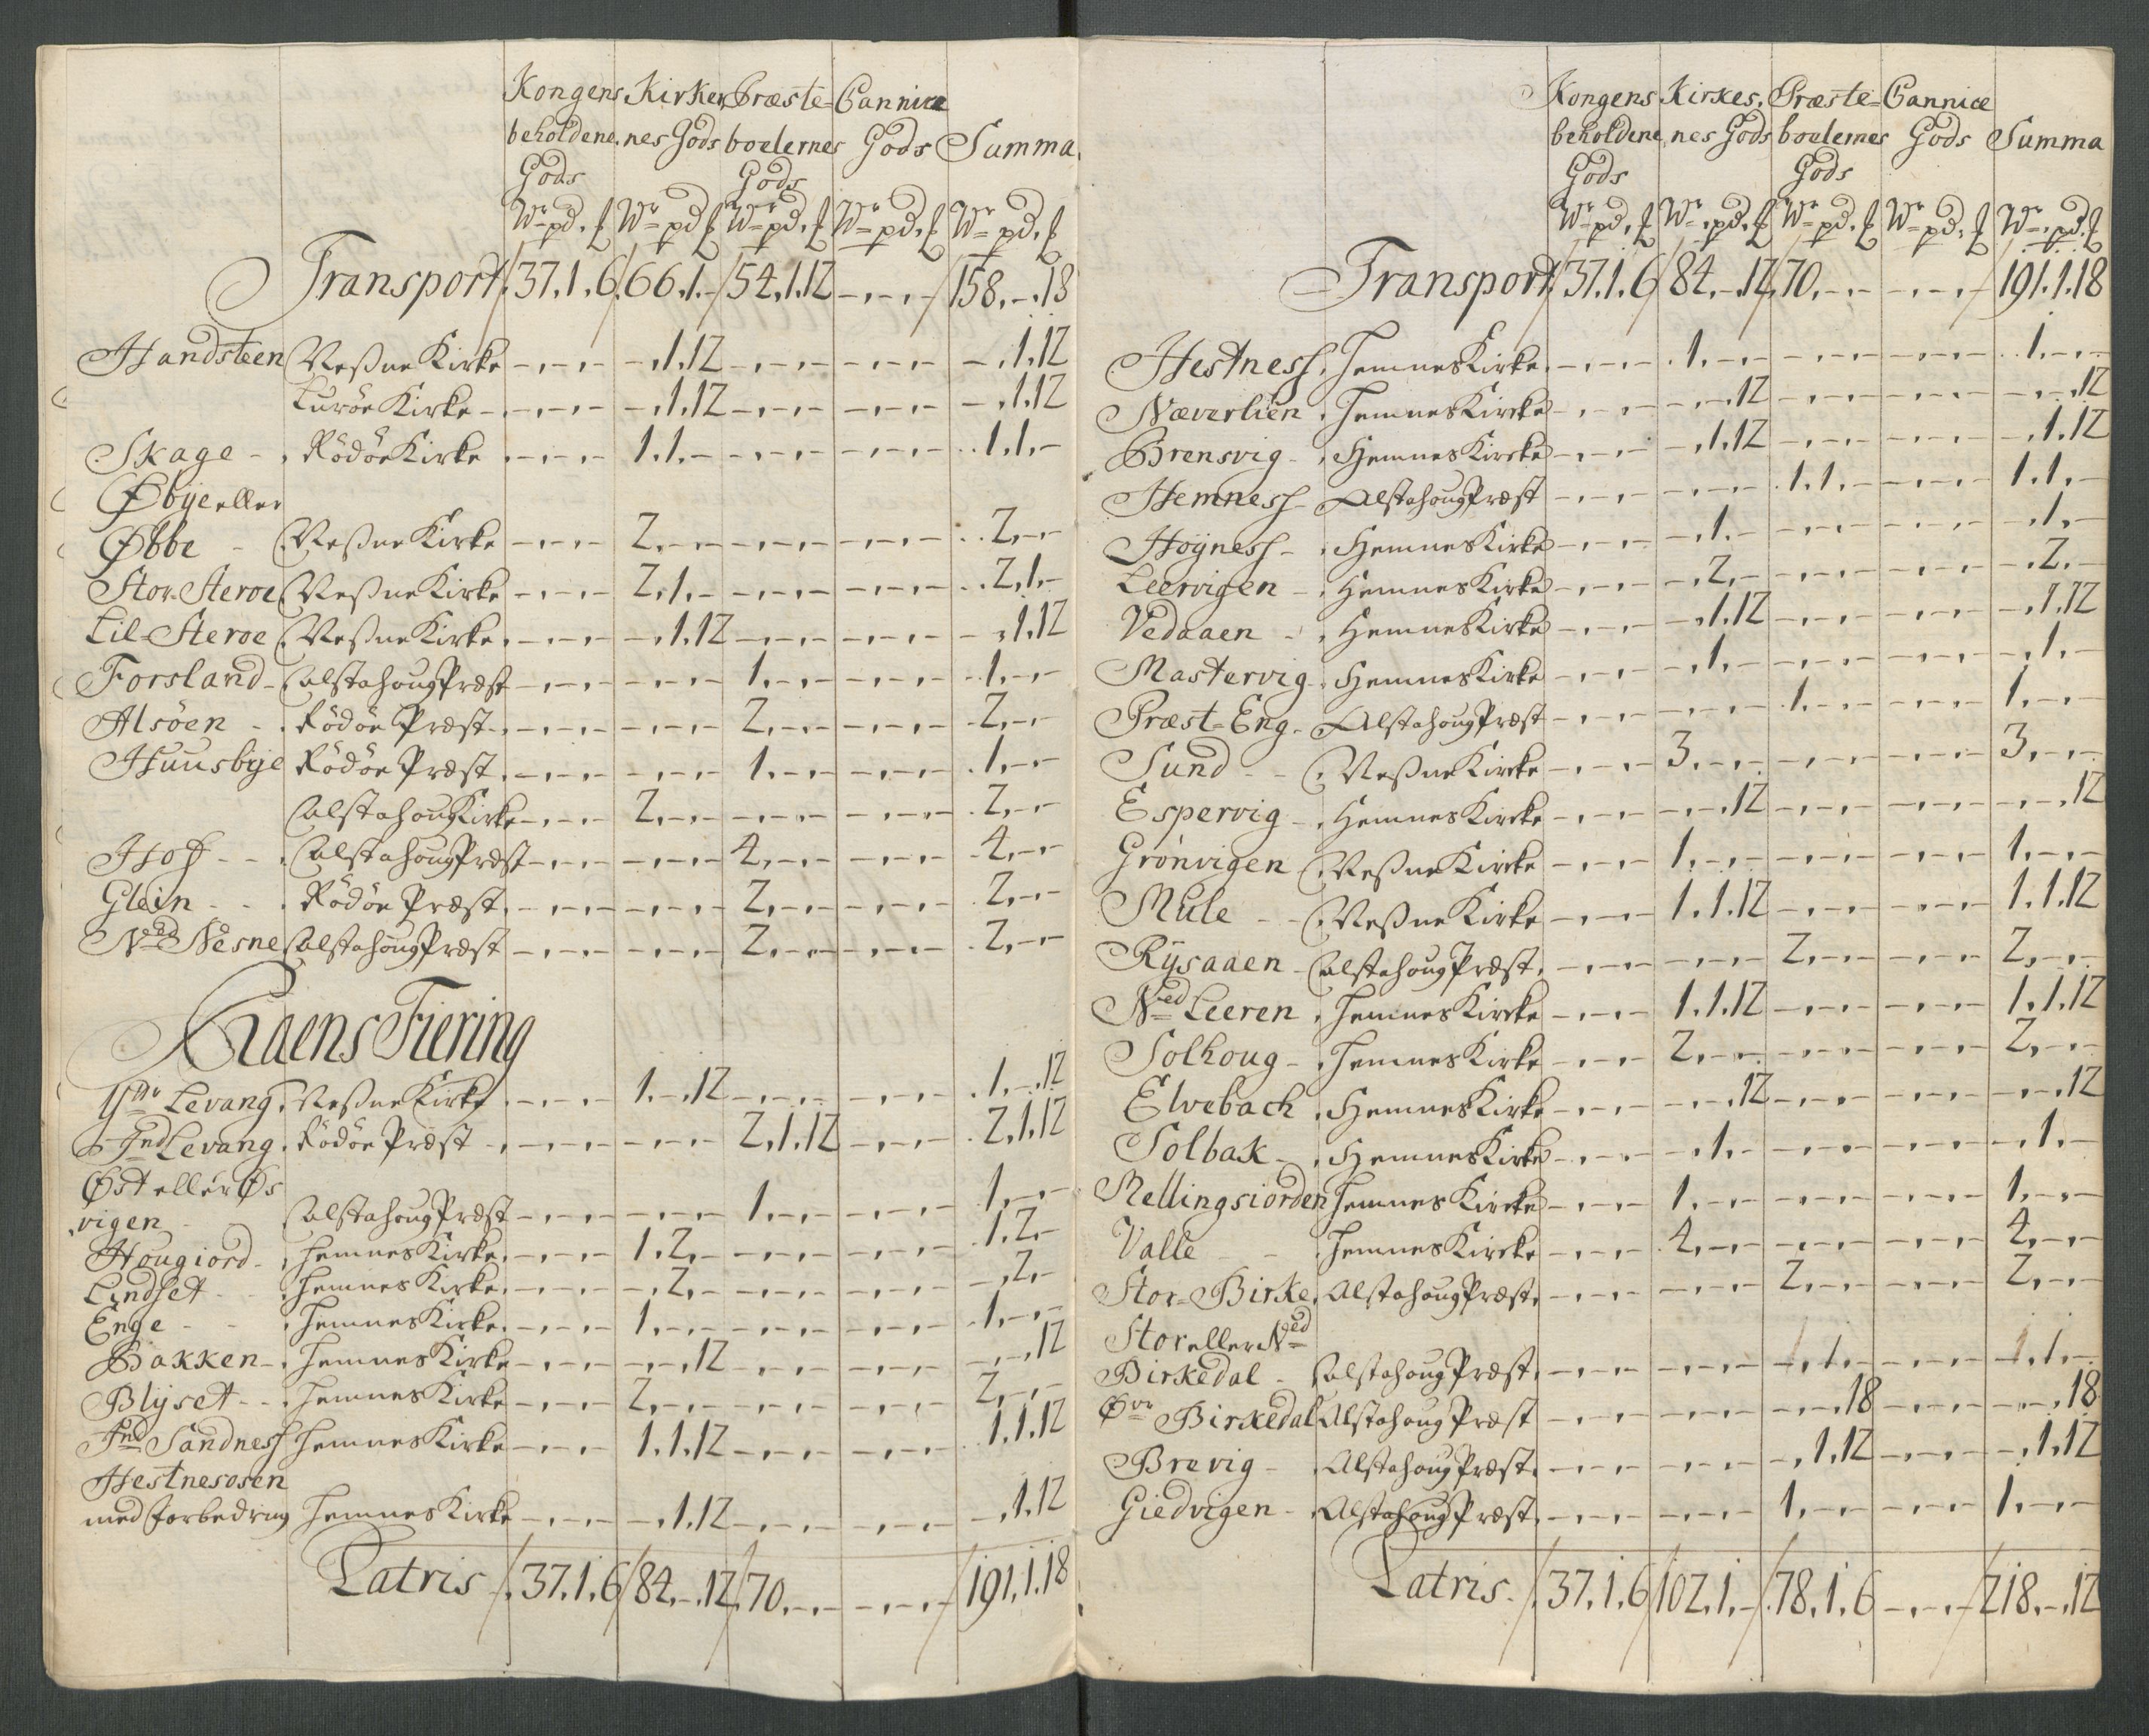 Kongens Kirker Præste- Cannice
beholdene. nes Gods boelernes Gods Summa.
Gods Gods
Wr pd. Wr pd Wr pd. Wr pd. Wr pd.
Transport 37.1.6 66.1.- 54.1.12 -.-.- 158.-.18
Handsteen Veßne Kirke -.-.- -.1.12 -.-.- -.-.- -.1.12
Lurøe Kirke -.-.- -.1.12 -.-.- -.-.- -.1.12
Skage - Rödöe Kirke -.-.- 1.1.- -.-.- -.-.- 1.1.-
Øbÿe eller
Øbbe - Veßne Kirke -.-.- 2.-.- -.-.- -.-.- 2.-.-
Stor-Steroe Veßne Kirke -.-.- 2.1.- -.-.- -.-.- 2.1.-
Lil-Steroe Veßne Kirke -.-.- -.1.12 -.-.- -.-.- -.1.12
Forsland - Alstahoug Præst -.-.- -.-.- 1.-.- -.-.- 1.-.-
Alsöen - Rödöe Præst -.-.- -.-.- 2.-.- -.-.- 2.-.-
Huusbÿe Rödöe Præst -.-.- -.-.- 1.-.- -.-.- 1.-.-
Alstahoug Kirke -.-.- 2.-.- -.-.- -.-.- 2.-.-
Hof - - Alstahoug Præst -.-.- -.-.- 4.-.- -.-.- 4.-.-
Glein - - Rödöe Præst -.-.- -.-.- 2.-.- -.-.- 2.-.-
Ned Nesne Alstahoug Præst -.-.- -.-.- 2.-.- -.-.- 2.-.-
Raens Fiering
Ytr Levang Veßne Kirke -.-.- 1.-.12 -.-.- -.-.- 1.-.12
Ind Levang Rödöe Præst -.-.- -.-.- 2.1.12 -.-.- 2.1.12
Øst eller Øs
vigen Alstahoug Præst -.-.- -.-.- 1.-.- -.-.- 1.-.-
Hougiord - Hemnes Kirke -.-.- 1.2.- -.-.- -.-.- 1.2.-
Lindset - Hemnes Kirke -.-.- -.2.- -.-.- -.-.- -.2.-
Enge - - Hemnes Kirke -.-.- 1.-.- -.-.- -.-.- 1.-.-
Bakken - Hemnes Kirke -.-.- -.-.12 -.-.- -.-.- -.-.12
Blÿset - - Hemnes Kirke -.-.- 2.-.- -.-.- -.-.- 2.-.-
Ind Sandness Hemnes Kirke -.-.- 1.1.12 -.-.- -.-.- 1.1.12
Hestnesosen
med forbedring Hemnes Kirke -.-.- -.1.12 -.-.- -.-.- -.1.12
Latris 37.1.6 84.-.12 70.-.- -.-.- 191.1.18
Kongens Kirkes. Præste- Cannice
beholdene nes Gods boelernes Gods Summa
Gods Gods
Wr pd. Wr pd. Wr pd. Wr pd. Wr pd.
Transport 37.1.6 84.-.12 70.-.- -.-.- 191.1.18
Hestness Hemnes Kirke -.-.- 1.-.- -.-.- -.-.- 1.-.-
Næverlien Hemnes Kirke -.-.- -.-.12 -.-.- -.-.- -.-.12
Brensvig - Hemnes Kirke -.-.- -.1.12 -.-.- -.-.- -.1.12
Hemness - Alstahoug Præst -.-.- -.-.- 1.1.- -.-.- 1.1.-
Høÿness - Hemnes Kirke -.-.- -.1.- -.-.- -.-.- -.1.-
Leervigen - Hemnes Kirke -.-.- -.2.- -.-.- -.-.- -.2.-
Vedaaen - Hemnes Kirke -.-.- -.1.12 -.-.- -.-.- -.1.12
Mastervig Hemnes Kirke -.-.- -.1.- -.-.- -.-.- -.1.-
Præst-Eng - Alstahoug Præst -.-.- -.-.- 1.-.- -.-.- 1.-.-
Sund - - Veßne Kirke -.-.- 3.-.- -.-.- -.-.- 3.-.-
Espervig - Hemnes Kirke -.-.- -.-.12 -.-.- -.-.- -.-.12
Grønvigen Veßne Kirke -.-.- 1.-.- -.-.- -.-.- 1.-.-
Mule - - Veßne Kirke -.-.- 1.1.12 -.-.- -.-.- 1.1.12
Rÿsaaen - Alstahoug Præst -.-.- -.-.- 2.-.- -.-.- 2.-.-
Ned Leeren Hemnes Kirke -.-.- 1.1.12 -.-.- -.-.- 1.1.12
Solhoug - Hemnes Kirke -.-.- 2.-.- -.-.- -.-.- 2.-.-
Elvebach Hemnes Kirke -.-.- -.-.12 -.-.- -.-.- -.-.12
Solbak - Hemnes Kirke -.-.- -.1.- -.-.- -.-.- -.1.-
Mellingsiorden Hemnes Kirke -.-.- 1.-.- -.-.- -.-.- 1.-.-
Valle - - Hemnes Kirke -.-.- 4.-.- -.-.- -.-.- 4.-.-
Stor-Birke Alstahoug Præst -.-.- -.-.- 2.-.- -.-.- 2.-.-
Stor eller Ned
Birkedal - Alstahoug Præst -.-.- -.-.- 1.1.- -.-.- 1.1.-
Øvr Birkedal Alstahoug Præst -.-.- -.-.- -.-.18 -.-.- -.-.18
Brevig - Alstahoug Præst -.-.- -.-.- -.1.12 -.-.- -.1.12
Giedvigen - Alstahoug Præst -.-.- -.-.- 1.-.- -.-.- 1.-.-
Latris 37.1.6 102.1.- 78.1.6 -.-.- 218.-.12